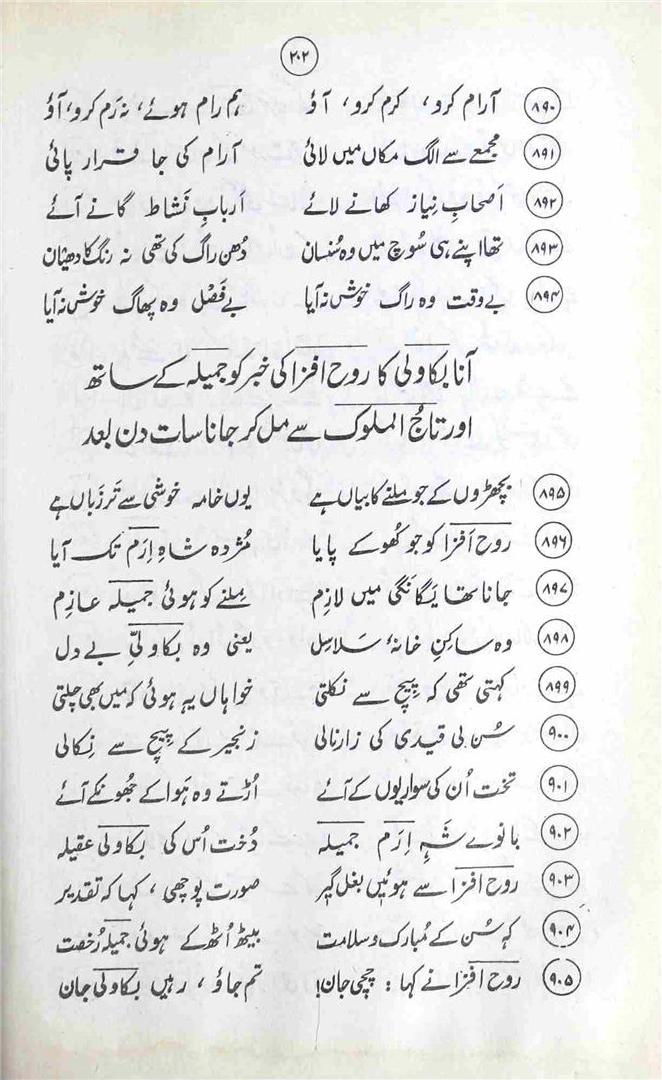 ۲۰۲
۸۹۰ آرام کرو، کرم کرو، آؤ ہم رام ہوئے، نہ رَم کرو، آؤ
۸۹۱ مجمع سے الگ مکاں میں لائی آرام کی جا قرار پائی
۸۹۲ اَصحابِ نِیاز کھانے لائے اَربابِ نَشاط گانے آئے
۸۹۳ تھا اپنے ہی سُوچ میں وہ سُنسان دُھن راگ کی تھی نہ رنگ کا دھیان
۸۹۴ بے وقت وہ راگ خوش نہ آیا بے فَصْل وہ پھاگ خوش نہ آیا
آنا بکاولی کا روح افزا کی خبر کو جمیلہ کے ساتھ
اور تاجُ الملوک سے مل کر جانا سات دن بعد
۸۹۵ بچھڑوں کے جو ملنے کا بیاں ہے یوں خامہ خوشی سے تَر زَباں ہے
۸۹۶ روح اَفزا کو جو کھُو کے پایا مُژدہ شاہِ اِرَم تک آیا
۸۹۷ جانا تھا یَگانگی میں لازِم مِلنے کو ہوئی جمیلہ عازِم
۸۹۸ وہ ساکِنِ خانۂ سَلاسِل یعنی وہ بکاولیِ بے دل
۸۹۹ کہتی تھی کہ پیچ سے نکلتی خواہاں یہ ہوئی کہ میں بھی چلتی
۹۰۰ سُن لی قیدی کی زار نالی زنجیر کے پیچ سے نِکالی
۹۰۱ تخت اُن کی سواریوں کے آئے اُڑتے وہ ہَوا کے جھونکے آئے
۹۰۲ بانوے شَہِ اِرَم جمیلہ دُخت اُس کی بکاولی عقیلہ
۹۰۳ روح افزا سے ہوئیں بغل گیر صورت پوچھی، کہا کہ تقدیر
۹۰۴ کہ سُن کے مُبارک و سلامت بیٹھ اُٹھ کے ہوئی جمیلہ رُخصت
۹۰۵ روح افزا نے کہا: چچی جان! تم جاؤ، رہیں بکاولی جان